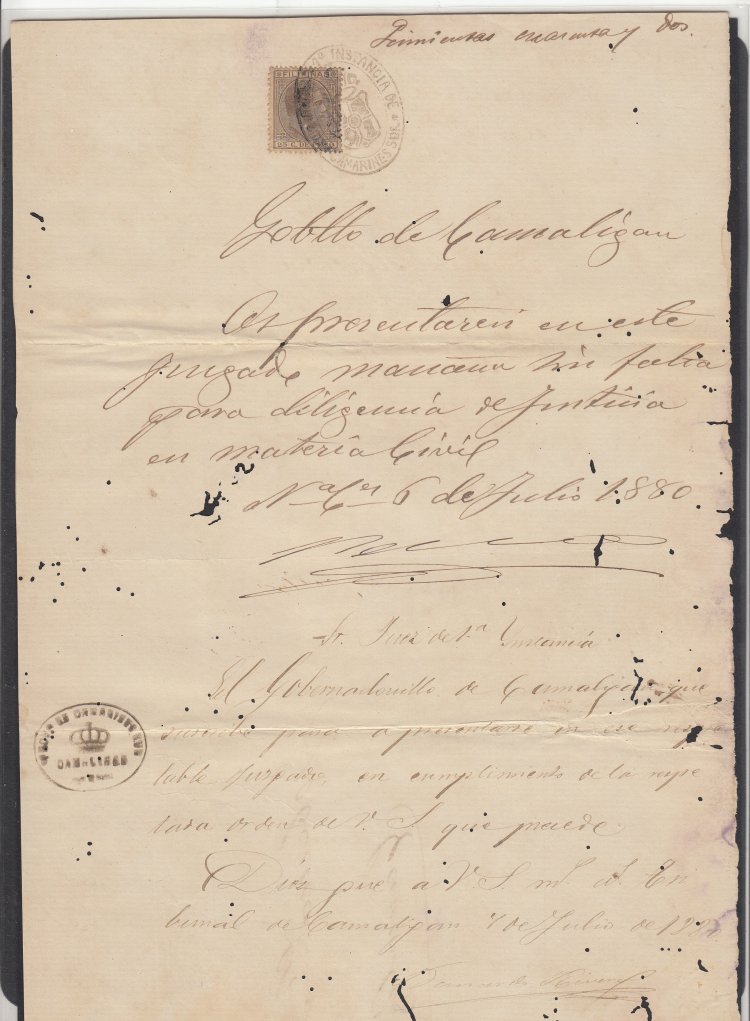 cuarenta y dos.
FILIPINAS
INSTANCIA DE
CAMARINES SUR
Gobllo de Camaligan
Os presentareis en este
juzgado mañana sin falta
para diligencia de Justicia
en materia Civil
Na Ces 6 de Julio 1880
Sr. Juez de 1ª Instancia
El Gobernadorcillo de Camaligan que
suscribe pasa a presentarse en ese respe
table Juzgado, en cumplimiento de la respe
tada orden de V. S. que precede.
Dios gue a V. S. ms. as. Tri
bunal de Camaligan 7 de Julio de